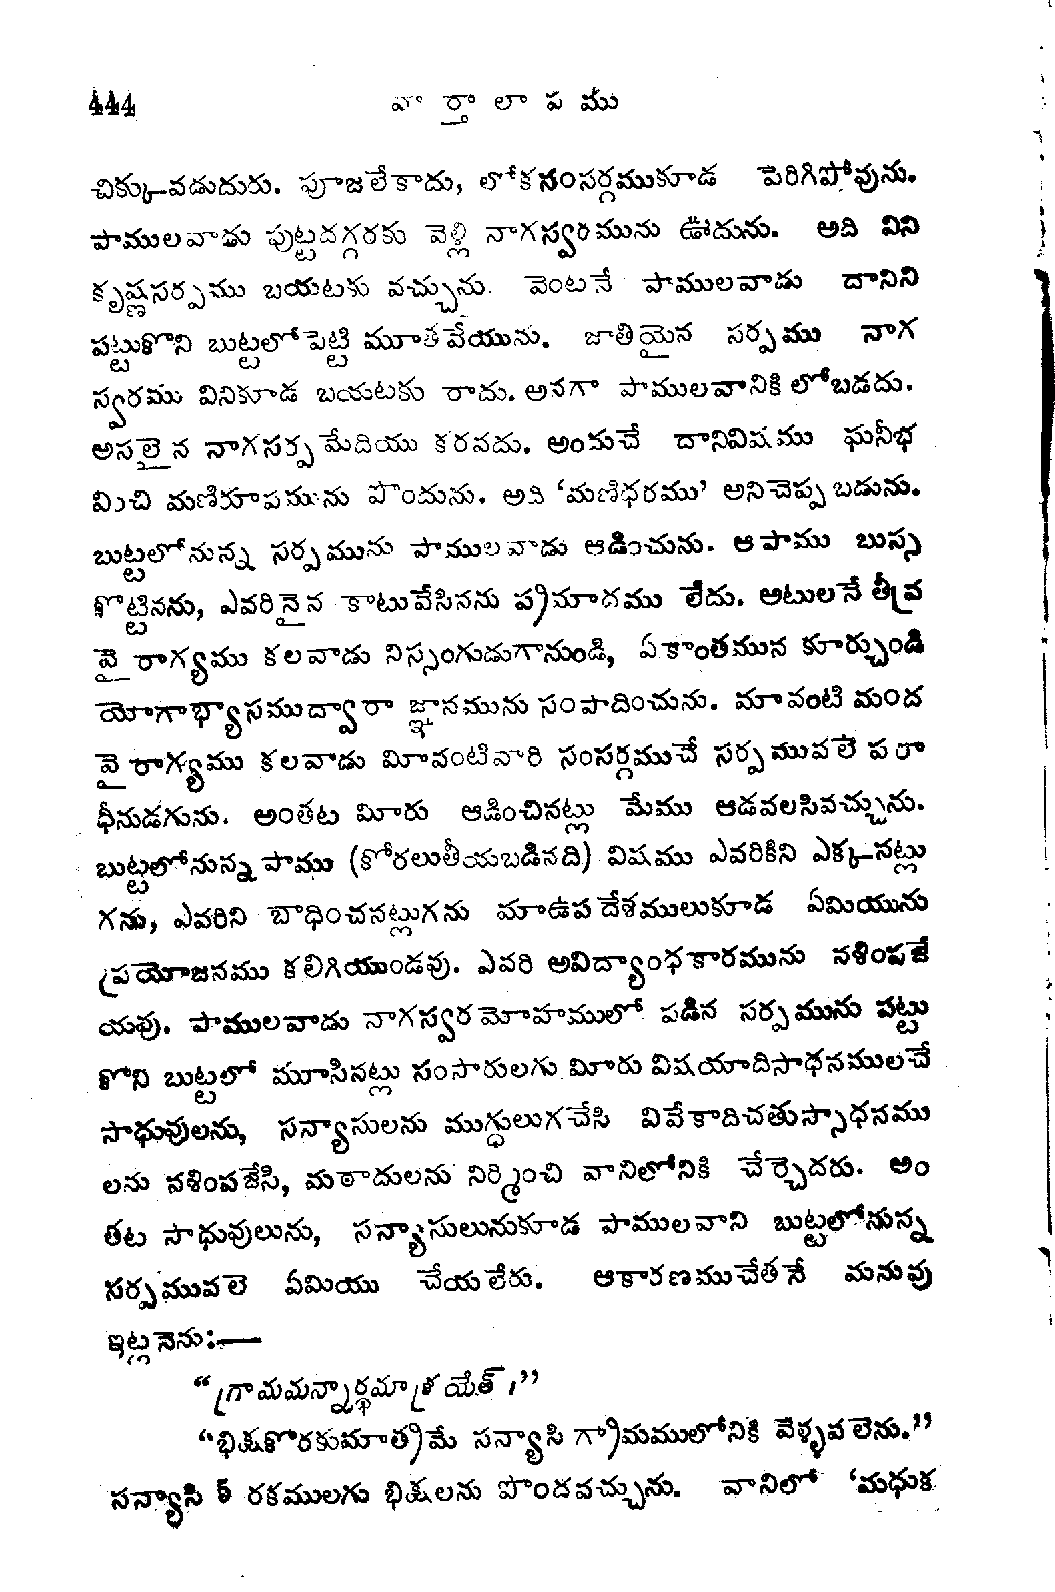 444 వార్తాలాపము
చిక్కువడుదురు. పూజలేకాదు, లోకసంసర్గముకూడ పెరిగిపోవును.
పాములవాడు పుట్టదగ్గరకు వెళ్లి నాగస్వరమును ఊదును. అది విని
కృష్ణసర్పము బయటకు వచ్చును. వెంటనే పాములవాడు దానిని
పట్టుకొని బుట్టలో పెట్టి మూతవేయును. జాతియైన సర్పము నాగ
స్వరము వినికూడ బయటకు రాదు. అనగా పాములవానికి లోబడదు.
అసలైన నాగసర్ప మేదియు కరవదు. అందుచే దానివిషము ఘనీభ
వించి మణిరూపమును పొందును. అది ‘మణిధరము’ అనిచెప్పబడును.
బుట్టలోనున్న సర్పమును పాములవాడు ఆడించును. ఆ పాము బుస్స
కొట్టినను, ఎవరినైన కాటువేసినను ప్రమాదము లేదు. అటులనే తీవ్ర
వైరాగ్యము కలవాడు నిస్సంగుడుగానుండి, ఏకాంతమున కూర్చుండి
యోగాభ్యాసముద్వారా జ్ఞానమును సంపాదించును. మావంటి మంద
వైరాగ్యము కలవాడు మీవంటివారి సంసర్గముచే సర్పమువలె పరా
ధీనుడగును. అంతట మీరు ఆడించినట్లు మేము ఆడవలసివచ్చును.
బుట్టలోనున్న పాము (కోరలుతీయబడినది) విషము ఎవరికిని ఎక్కనట్లు
గను, ఎవరిని బాధించనట్లుగను మాఉపదేశములుకూడ ఏమియును
ప్రయోజనము కలిగియుండవు. ఎవరి అవిద్యాంధకారమును నశింపజే
యవు. పాములవాడు నాగస్వర మోహములో పడిన సర్పమును పట్టు
కొని బుట్టలో మూసినట్లు సంసారులగు మీరు విషయాదిసాధనములచే
సాధువులను, సన్యాసులను ముగ్ధులుగచేసి వివేకాదిచతుస్సాధనము
లను నశింపజేసి, మఠాదులను నిర్మించి వానిలోనికి చేర్చెదరు. అం
తట సాధువులును, సన్యాసులునుకూడ పాములవాని బుట్టలోనున్న
సర్పమువలె ఏమియు చేయలేరు. ఆకారణముచేతనే మనువు
ఇట్లనెను:—
“గ్రామమన్నార్థమాశ్రయేత్।”
“భిక్షకొరకుమాత్రమే సన్యాసి గ్రామములోనికి వేళ్ళవలెను.”
సన్యాసి 5 రకములగు భిక్షలను పొందవచ్చును. వానిలో ‘మధుక